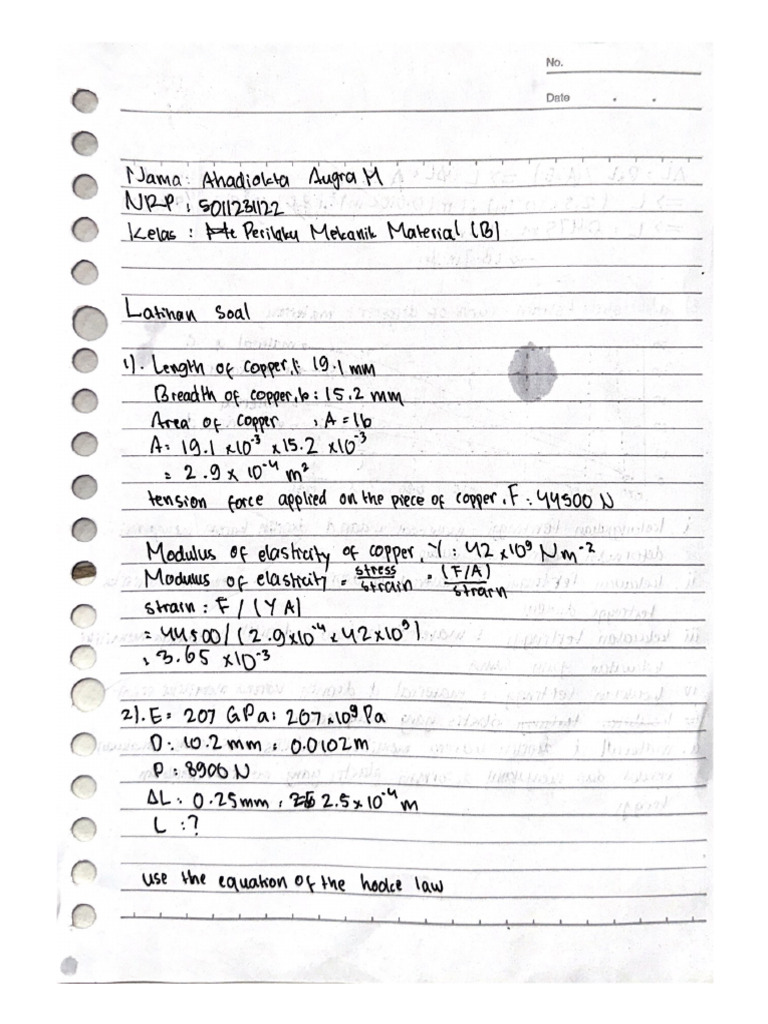 No.
Date
Nama: Ahadiokta Augra M
NRP: 5011231122
Kelas: Perilaku Mekanik Material (B)
Latihan Soal
1). Length of copper, l: 19.1 mm
Breadth of copper, b: 15.2 mm
Area of copper , A = lb
A: 19.1 x10⁻³ x 15.2 x10⁻³
= 2.9 x 10⁻⁴ m²
tension force applied on the piece of copper. F: 44500 N
Modulus of elasticity of copper, Y: 42 x 10⁹ Nm⁻²
Modulus of elasticity = stress/strain = (F/A)/strain
strain: F / (YA)
= 44500/(2.9x10⁻⁴ x 42x10⁹)
: 3.65 x10⁻³
2). E= 207 GPa: 207x10⁹ Pa
D: 10.2 mm = 0.0102m
P: 8900 N
ΔL: 0.25mm : 2.5 x 10⁻⁴ m
L :?
use the equation of the hooke law